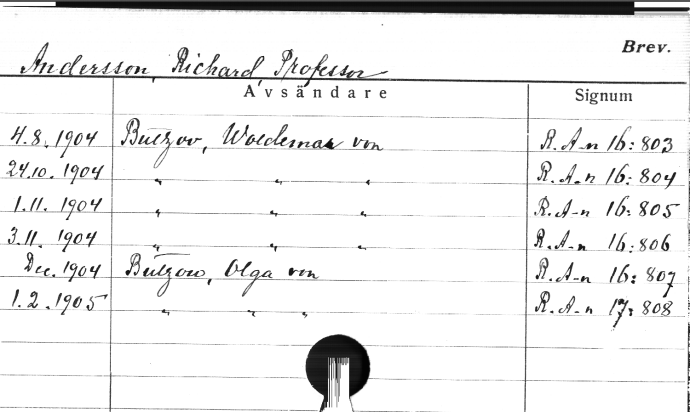 Brev.
Andersson, Richard, Professor
Avsändare Signum
4.8.1904 Butzow, Woldemar von R.A-n 16:803
24.10.1904 " " " R.A-n 16:804
1.11.1904 " " " R.A-n 16:805
3.11.1904 " " " R.A-n 16:806
Dec.1904 Butzow, Olga von R.A-n 16:807
1.2.1905 " " " R.A-n 17:808